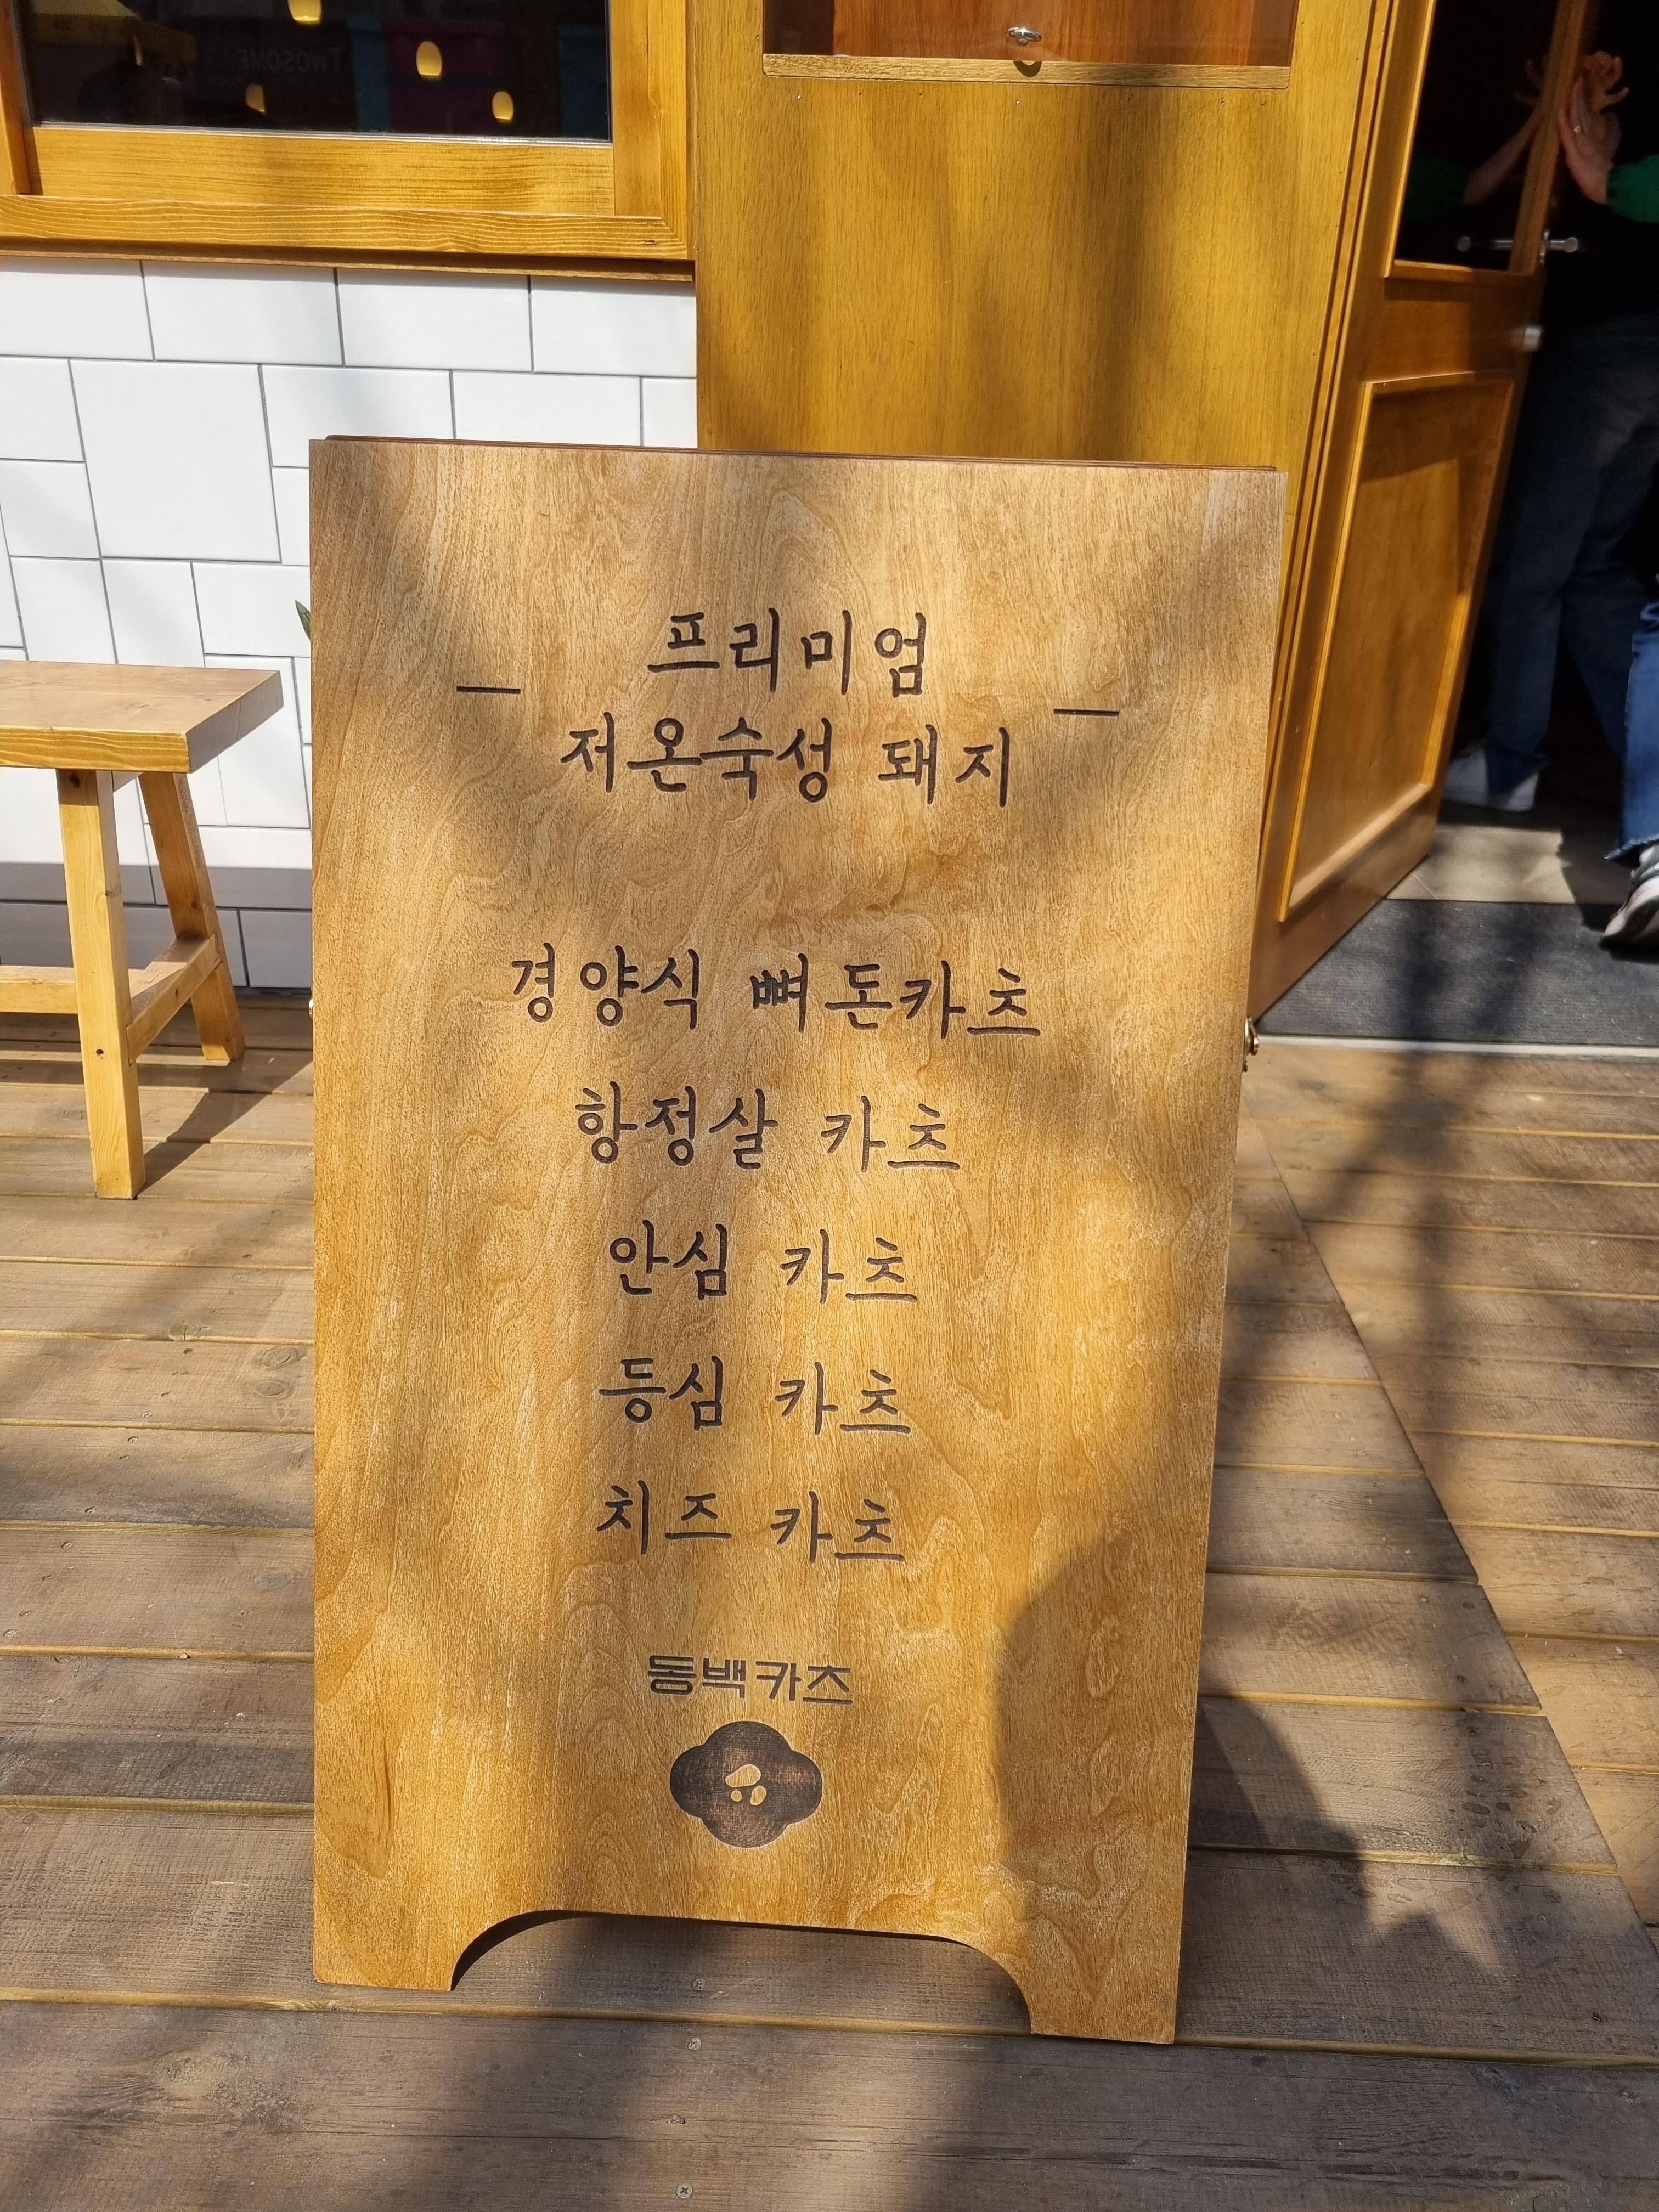 TWOSOME
프리미엄
저온숙성 돼지
경양식 뼈돈카츠
항정살 카츠
안심 카츠
등심 카츠
치즈 카츠
동백카츠